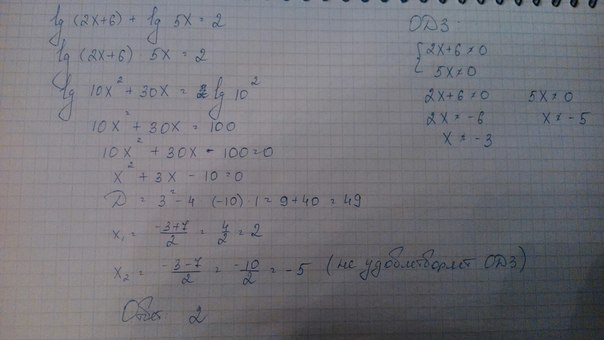 lg (2x+6) + lg 5x = 2
lg (2x+6) 5x = 2
lg 10x² + 30x = 2 lg 10²
10x² + 30x = 100
10x² + 30x - 100 = 0
x² + 3x - 10 = 0
D = 3² - 4 (-10) · 1 = 9 + 40 = 49
x₁ = \frac{-3+7}{2} = \frac{4}{2} = 2
x₂ = \frac{-3-7}{2} = \frac{-10}{2} = -5 (не удовлетворяет ОДЗ)
Ответ 2
ОДЗ
{ 2x+6 ≠ 0
5x ≠ 0
2x+6 ≠ 0 5x ≠ 0
2x ≠ -6 x ≠ -5
x ≠ -3